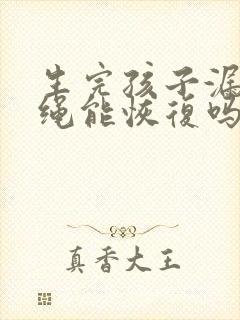 生完孩子漏
绳能恢復吗
真香大王